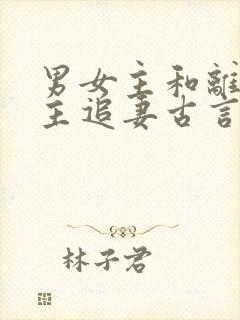 男女主和離
主追妻古言
林子君